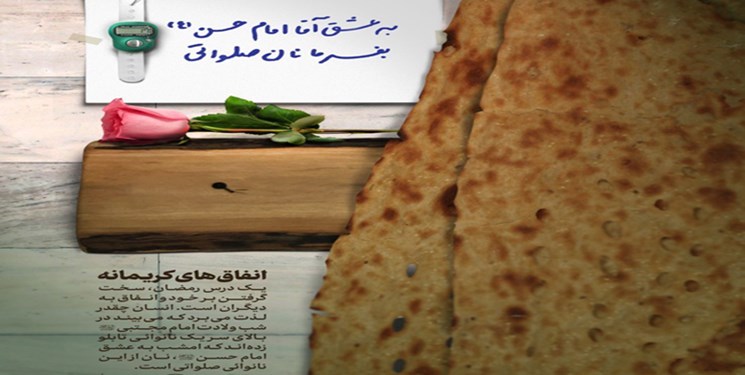 به عشق آقا امام حسن (ع)
بفرما نان صلواتی
انفاق‌های کریمانه
یک درس رمضان، سخت
گرفتن بر خود و انفاق به
دیگران است. انسان چقدر
لذت می‌برد که می‌بیند در
شب ولادت امام مجتبی
بالای سر یک نانوائی تابلو
زده‌اند که امشب به عشق
امام حسن، نان از این
نانوائی صلواتی است.